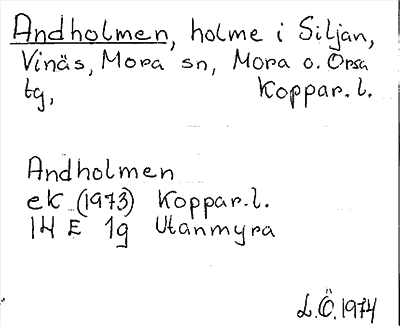 Andholmen, holme i Siljan,
Vinäs, Mora sn, Mora o. Orsa
tg, Koppar.l.
Andholmen
ek (1973) Koppar.l.
14 E 1g Utanmyra
L.Ö. 1974